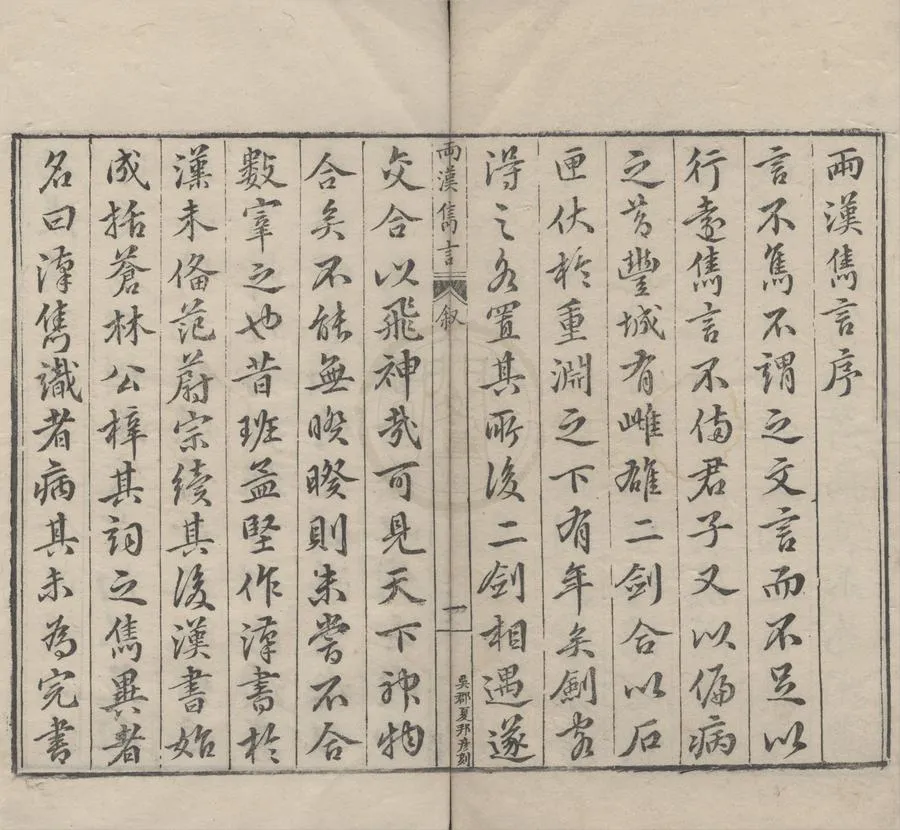 兩漢雋言序
言不雋不謂之文言而不足以
行遠雋言不備君子又以偏病
之昔豐城有雌雄二劍合以石
匣伏於重淵之下有年矣劍客
得之各置其所後二劍相遇遂
兩漢雋言
敘
一
吳郡夏邦彥刻
交合以飛神哉可見天下神物
合矣不能無暌暌則未嘗不合
數宰之也昔班孟堅作漢書於
漢未備范蔚宗續其後漢書始
成括蒼林公梓其詞之雋異者
名曰漢雋識者病其未為完書